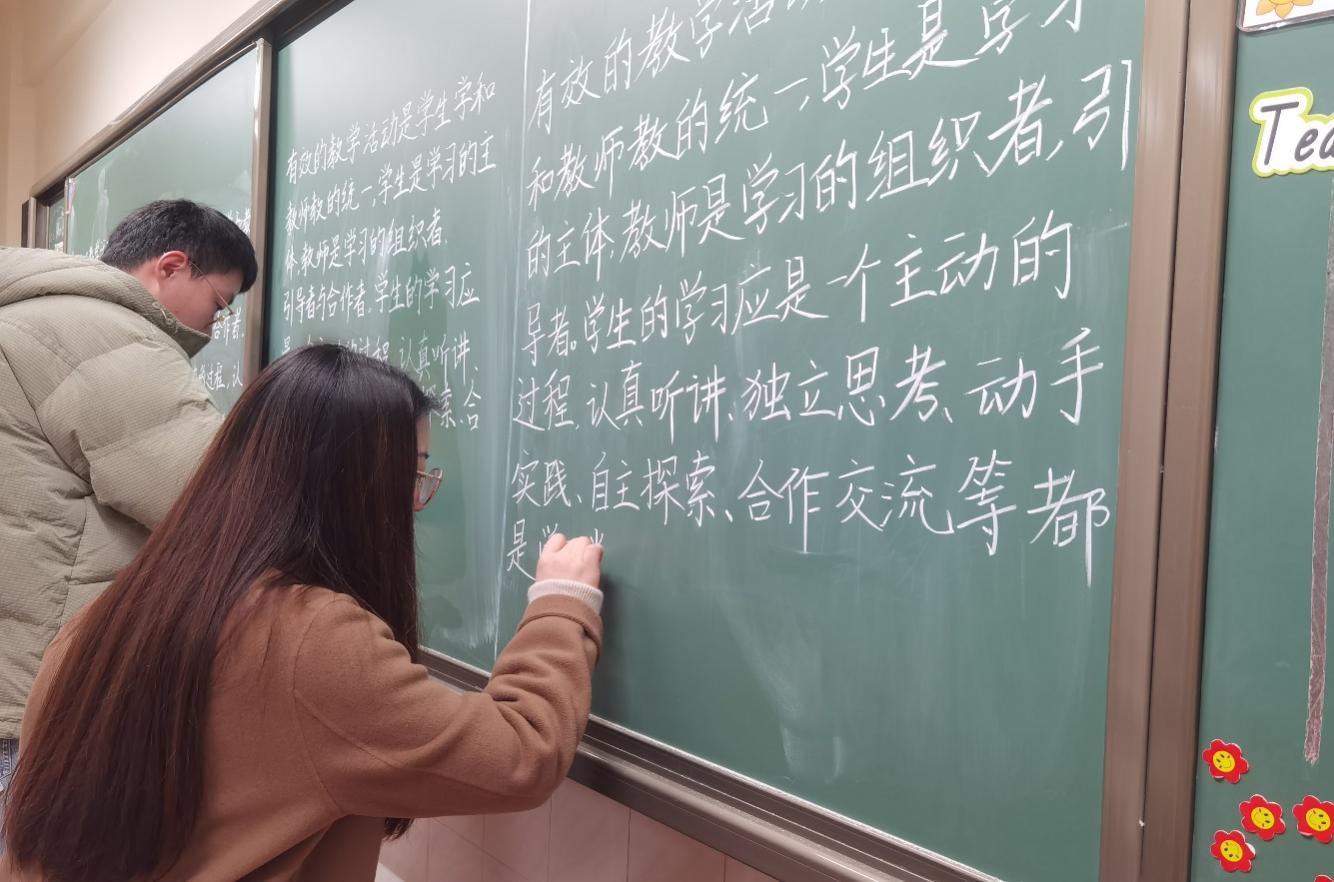 合作者,
过程,认
有效的教学活动是学生学和
教师教的统一,学生是学习的主
体,教师是学习的组织者,
引导者与合作者,学生的学习应
是 的过程,认真听讲、
索、合
有效的教学活动
和教师教的统一,学生是学习
的主体,教师是学习的组织者,引
导者。学生的学习应是一个主动的
过程,认真听讲、独立思考、动手
实践、自主探索、合作交流等都
是学
Tea